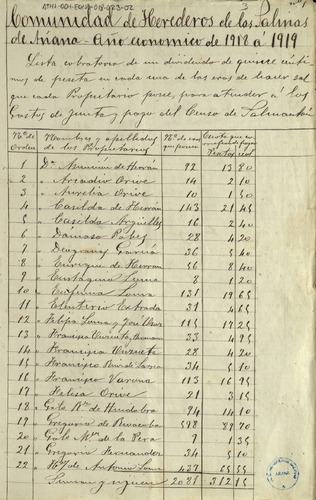 ATHA-001-FC019-018-023-02
3
Comunidad de Herederos de las Salinas
de Añana - Año economico de 1918 á 1919
Lista cobratoria de un dividendo de quince centi-
mos de peseta en cada una de las eras de hacer sal
que cada Propietario posee, para atender á los
Gastos de Junta y pago del Censo de Salmantón
Nº de Orden Nombres y apellidos de los Propietarios Nº de eras que poseen Cuota que corresponde de pago Pesetas cent
1 Dn Asunción de Herrán 92 13 80
2 " Arcadio Orive 14 2 10
3 " Aurelia Orive 10 1 50
4 " Casilda de Herrán 143 21 45
5 " Casilda Argüelles 16 2 40
6 " Damaso Pobes 28 4 20
7 " Deogracias García 36 5 40
8 " Enrique de Herrán 56 8 40
9 " Eustaquio Loma 8 1 20
10 " Eufemia Loma 131 19 65
11 " Eleuterio Estrada 31 4 65
12 " Felipa Loma y José 115 17 25
13 " Francisco 33 4 95
14 " Francisca 28 4 20
15 " Francisco 34 5 10
16 " Francisco Varona 113 16 95
17 " Felisa Orive 21 3 15
18 " Galo Rz de Mendalba 94 14 10
19 " Gregorio de Revacoba 598 89 70
20 " Galo Mz de la Pera 9 1 35
21 " Gregorio Fernandez 34 5 10
22 " Hs de Antonio Loma 437 65 55
Suman y siguen 2081 312 15